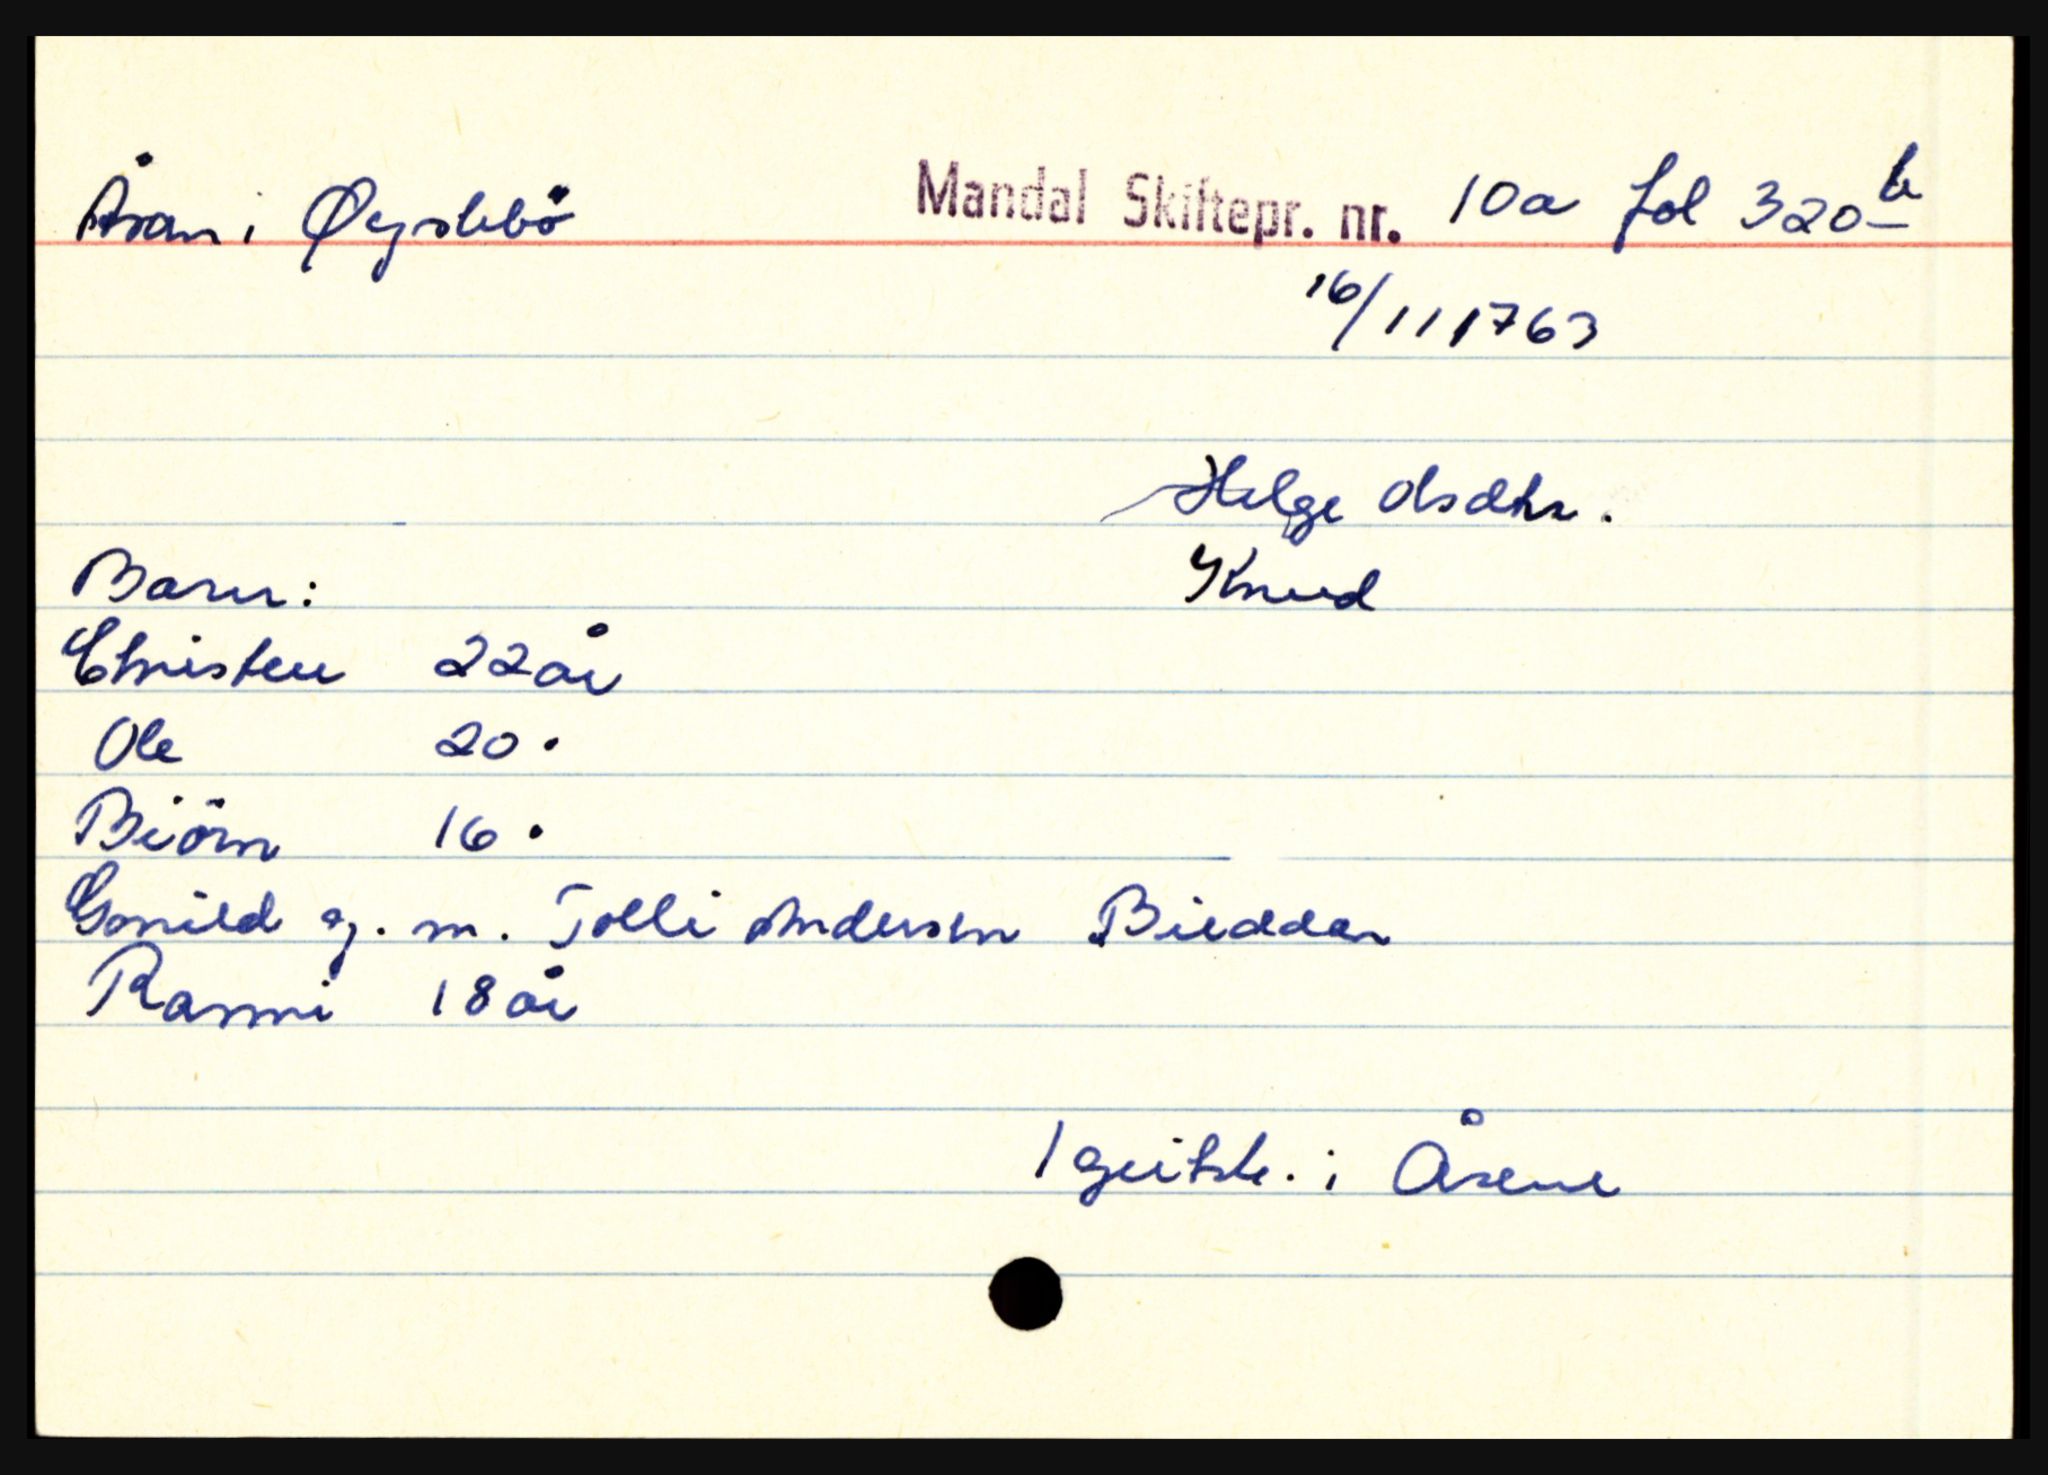 Åsan i Øyslebö Mandal Skiftepr. nr. 10a fol 320b
16/11 1763
Helge Olsdtr.
Barn: Knud
Christen 22 år
Ole 20 "
Biörn 16 "
Gonild g. m. Tolli Andersen Bieddan
Ranni 18 år
1 geitsk. i Åsene